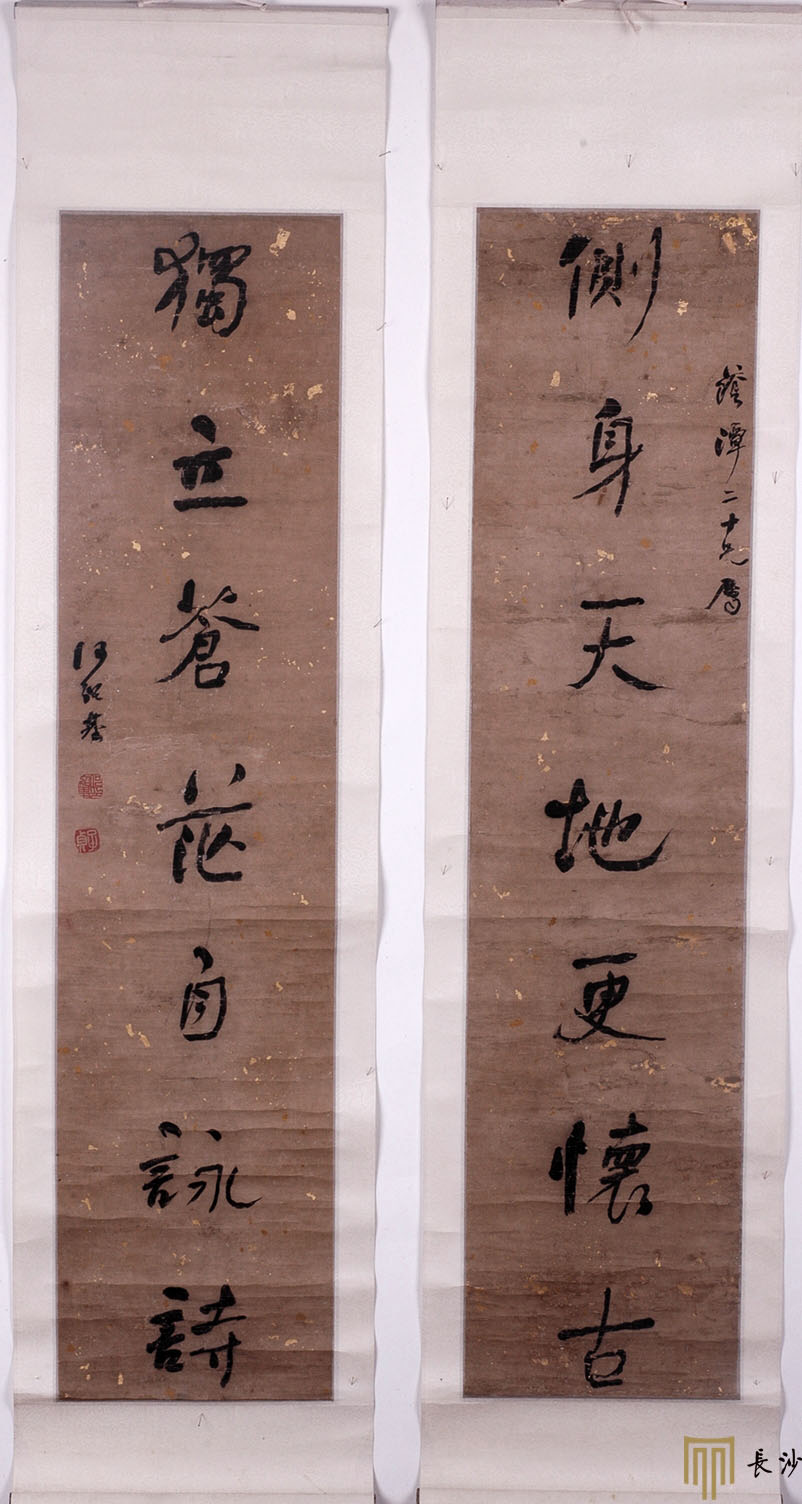 蔭潭二十兄屬
側身天地更懷古
獨立蒼茫自詠詩
何紹基
長沙